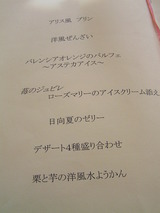 アリス風 プリン
洋風ぜんざい
バレンシアオレンジのパルフェ
～アステカアイス～
苺のジュビレ
ローズマリーのアイスクリーム添え
日向夏のゼリー
デザート4種盛り合わせ
栗と芋の洋風水ようかん